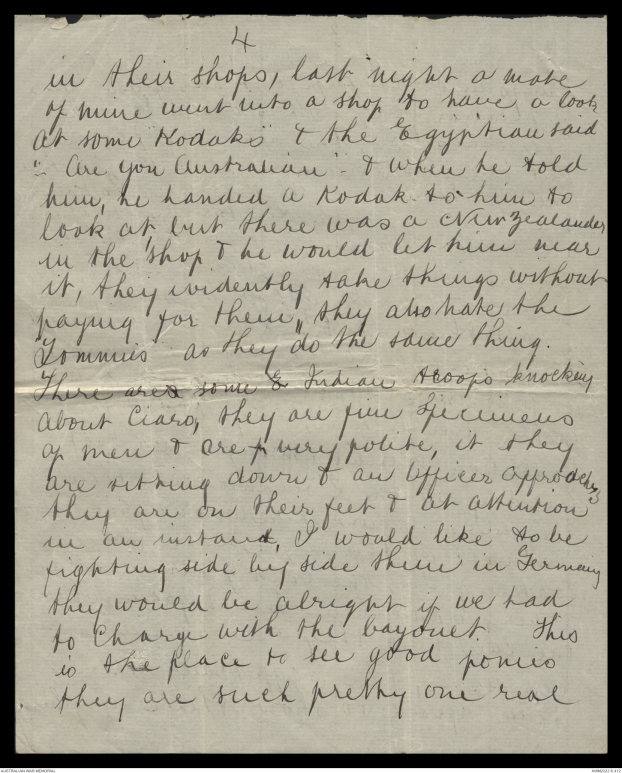 4
in their shops, last night a mate
of mine went into a shop to have a look
at some "Kodaks" & the Egyptian said
"Are you Australian" - & when he told
him, he handed a Kodak to him to
look at, but there was a New Zealander
in the shop & he would let him near
it, they evidently take things without
paying for them, they also hate the
"Tommies" as they do the same thing.
There are some Indian troops knocking
about Ciaro, they are fine specimens
of men & are very polite, if they
are sitting down & an officer approaches
they are on their feet & at attention
in an instant, I would like to be
fighting side by side them in Germany
they would be alright if we had
to charge with the bayonet. This
is the place to see good ponies
they are such pretty one real
AUSTRALIAN WAR MEMORIAL